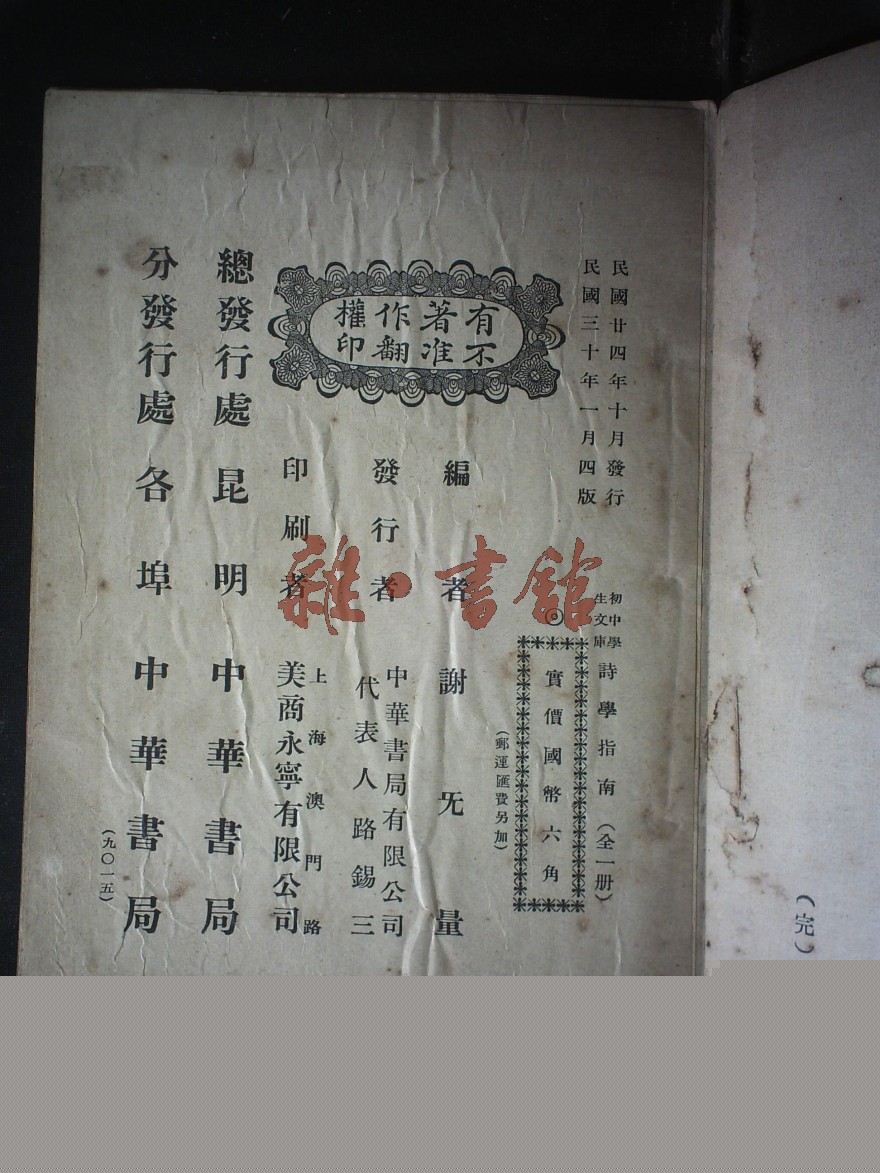 民國廿四年十月發行
民國三十年一月四版
初中學
生文庫
詩學指南（全一册）
◎實價國幣六角
（郵運匯費另加）
有著作權
不准翻印
編者 謝旡量
發行者 中華書局有限公司
代表人路錫三
印刷者 上海澳門路
美商永寧有限公司
總發行處 昆明 中華書局
分發行處 各埠 中華書局
（九〇一五）
（完）
雜·書館